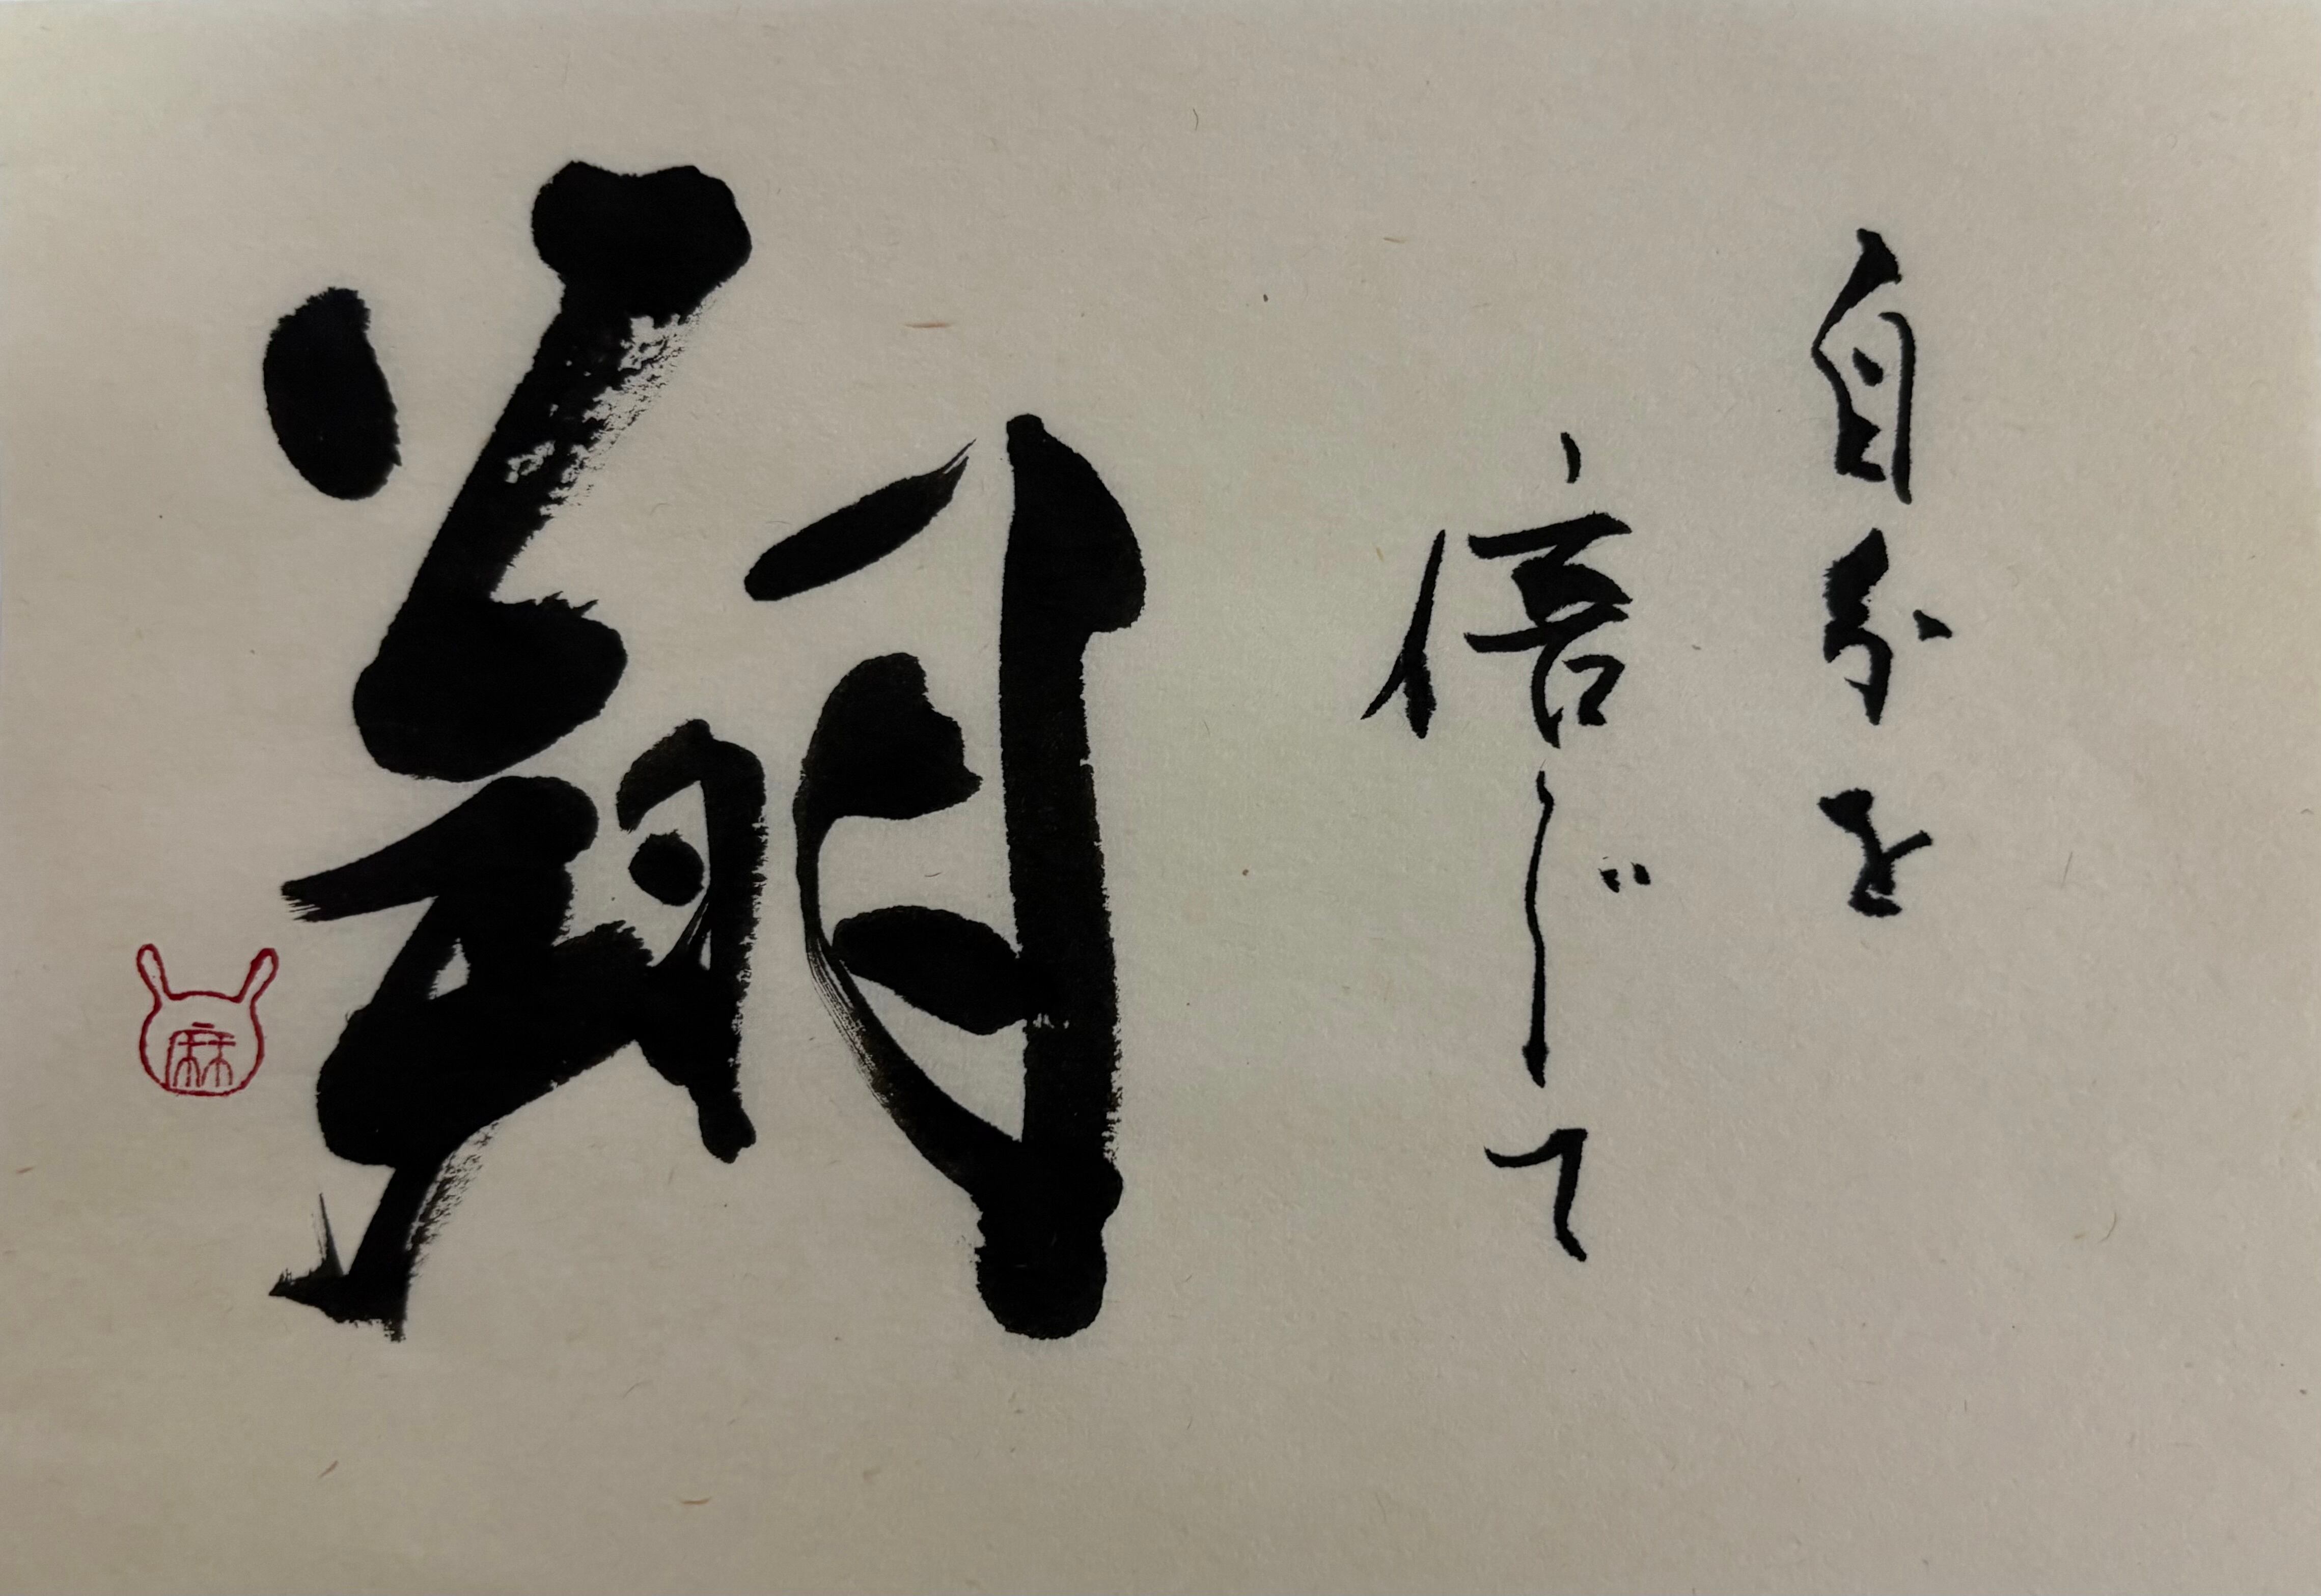 自分を
信じて
翔
麻